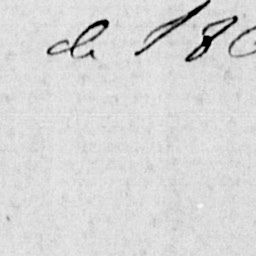 de 18